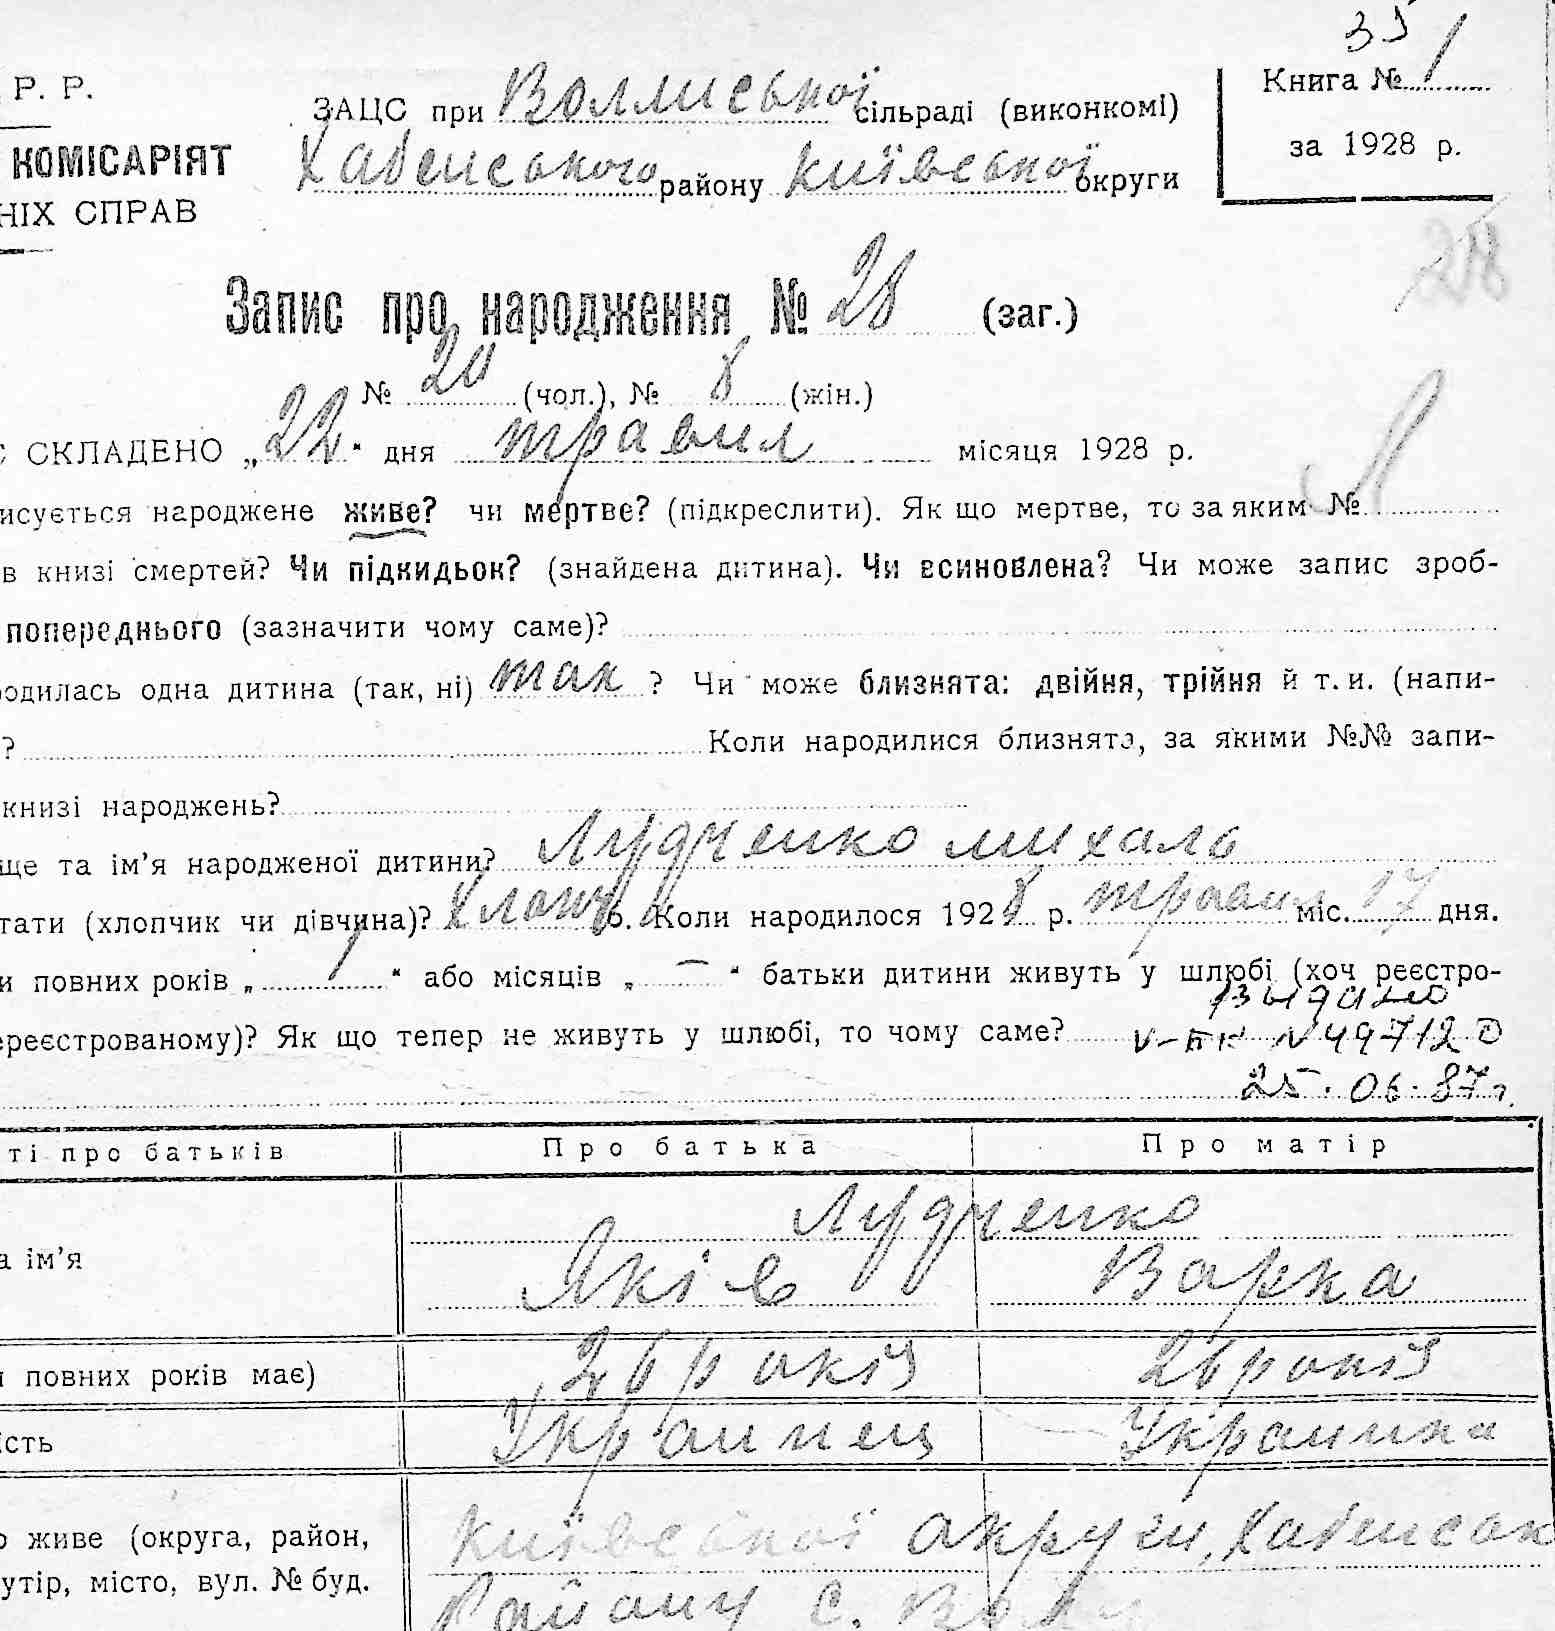 35
Р. Р.
ЗАЦС при Воллиської сільраді (виконкомі)
Книга № 1
КОМІСАРІЯТ
Хабенського району Київської округи
за 1928 р.
НІХ СПРАВ
28
Запис про народження № 28 (заг.)
№ 20 (чол.), № 8 (жін.)
С СКЛАДЕНО „22“ дня травня місяця 1928 р.
исується народжене живе? чи мертве? (підкреслити). Як що мертве, то за яким №
в книзі смертей? Чи підкидьок? (знайдена дитина). Чи всиновлена? Чи може запис зроб-
попереднього (зазначити чому саме)?
одилась одна дитина (так, ні) так ? Чи може близнята: двійня, трійня й т. и. (напи-
? Коли народилися близнята, за якими №№ запи-
книзі народжень?
ще та ім’я народженої дитини? Лудченко михаль
тати (хлопчик чи дівчина)? Хлопч. Коли народилося 1928 р. травня міс. 17 дня.
и повних років „ 1 “ або місяців „ — “ батьки дитини живуть у шлюбі (хоч реєстро-
ереєстрованому)? Як що тепер не живуть у шлюбі, то чому саме? выдано
V-БК N 497120
25.06.87г.
ті про батьків Про батька Про матір
Лудченко
а ім’я Яків Варка
и повних років має) 26 років 26 років
ість Украинец Украинка
о живе (округа, район, Київської округи, Хабенськ
утір, місто, вул. № буд. Району с.